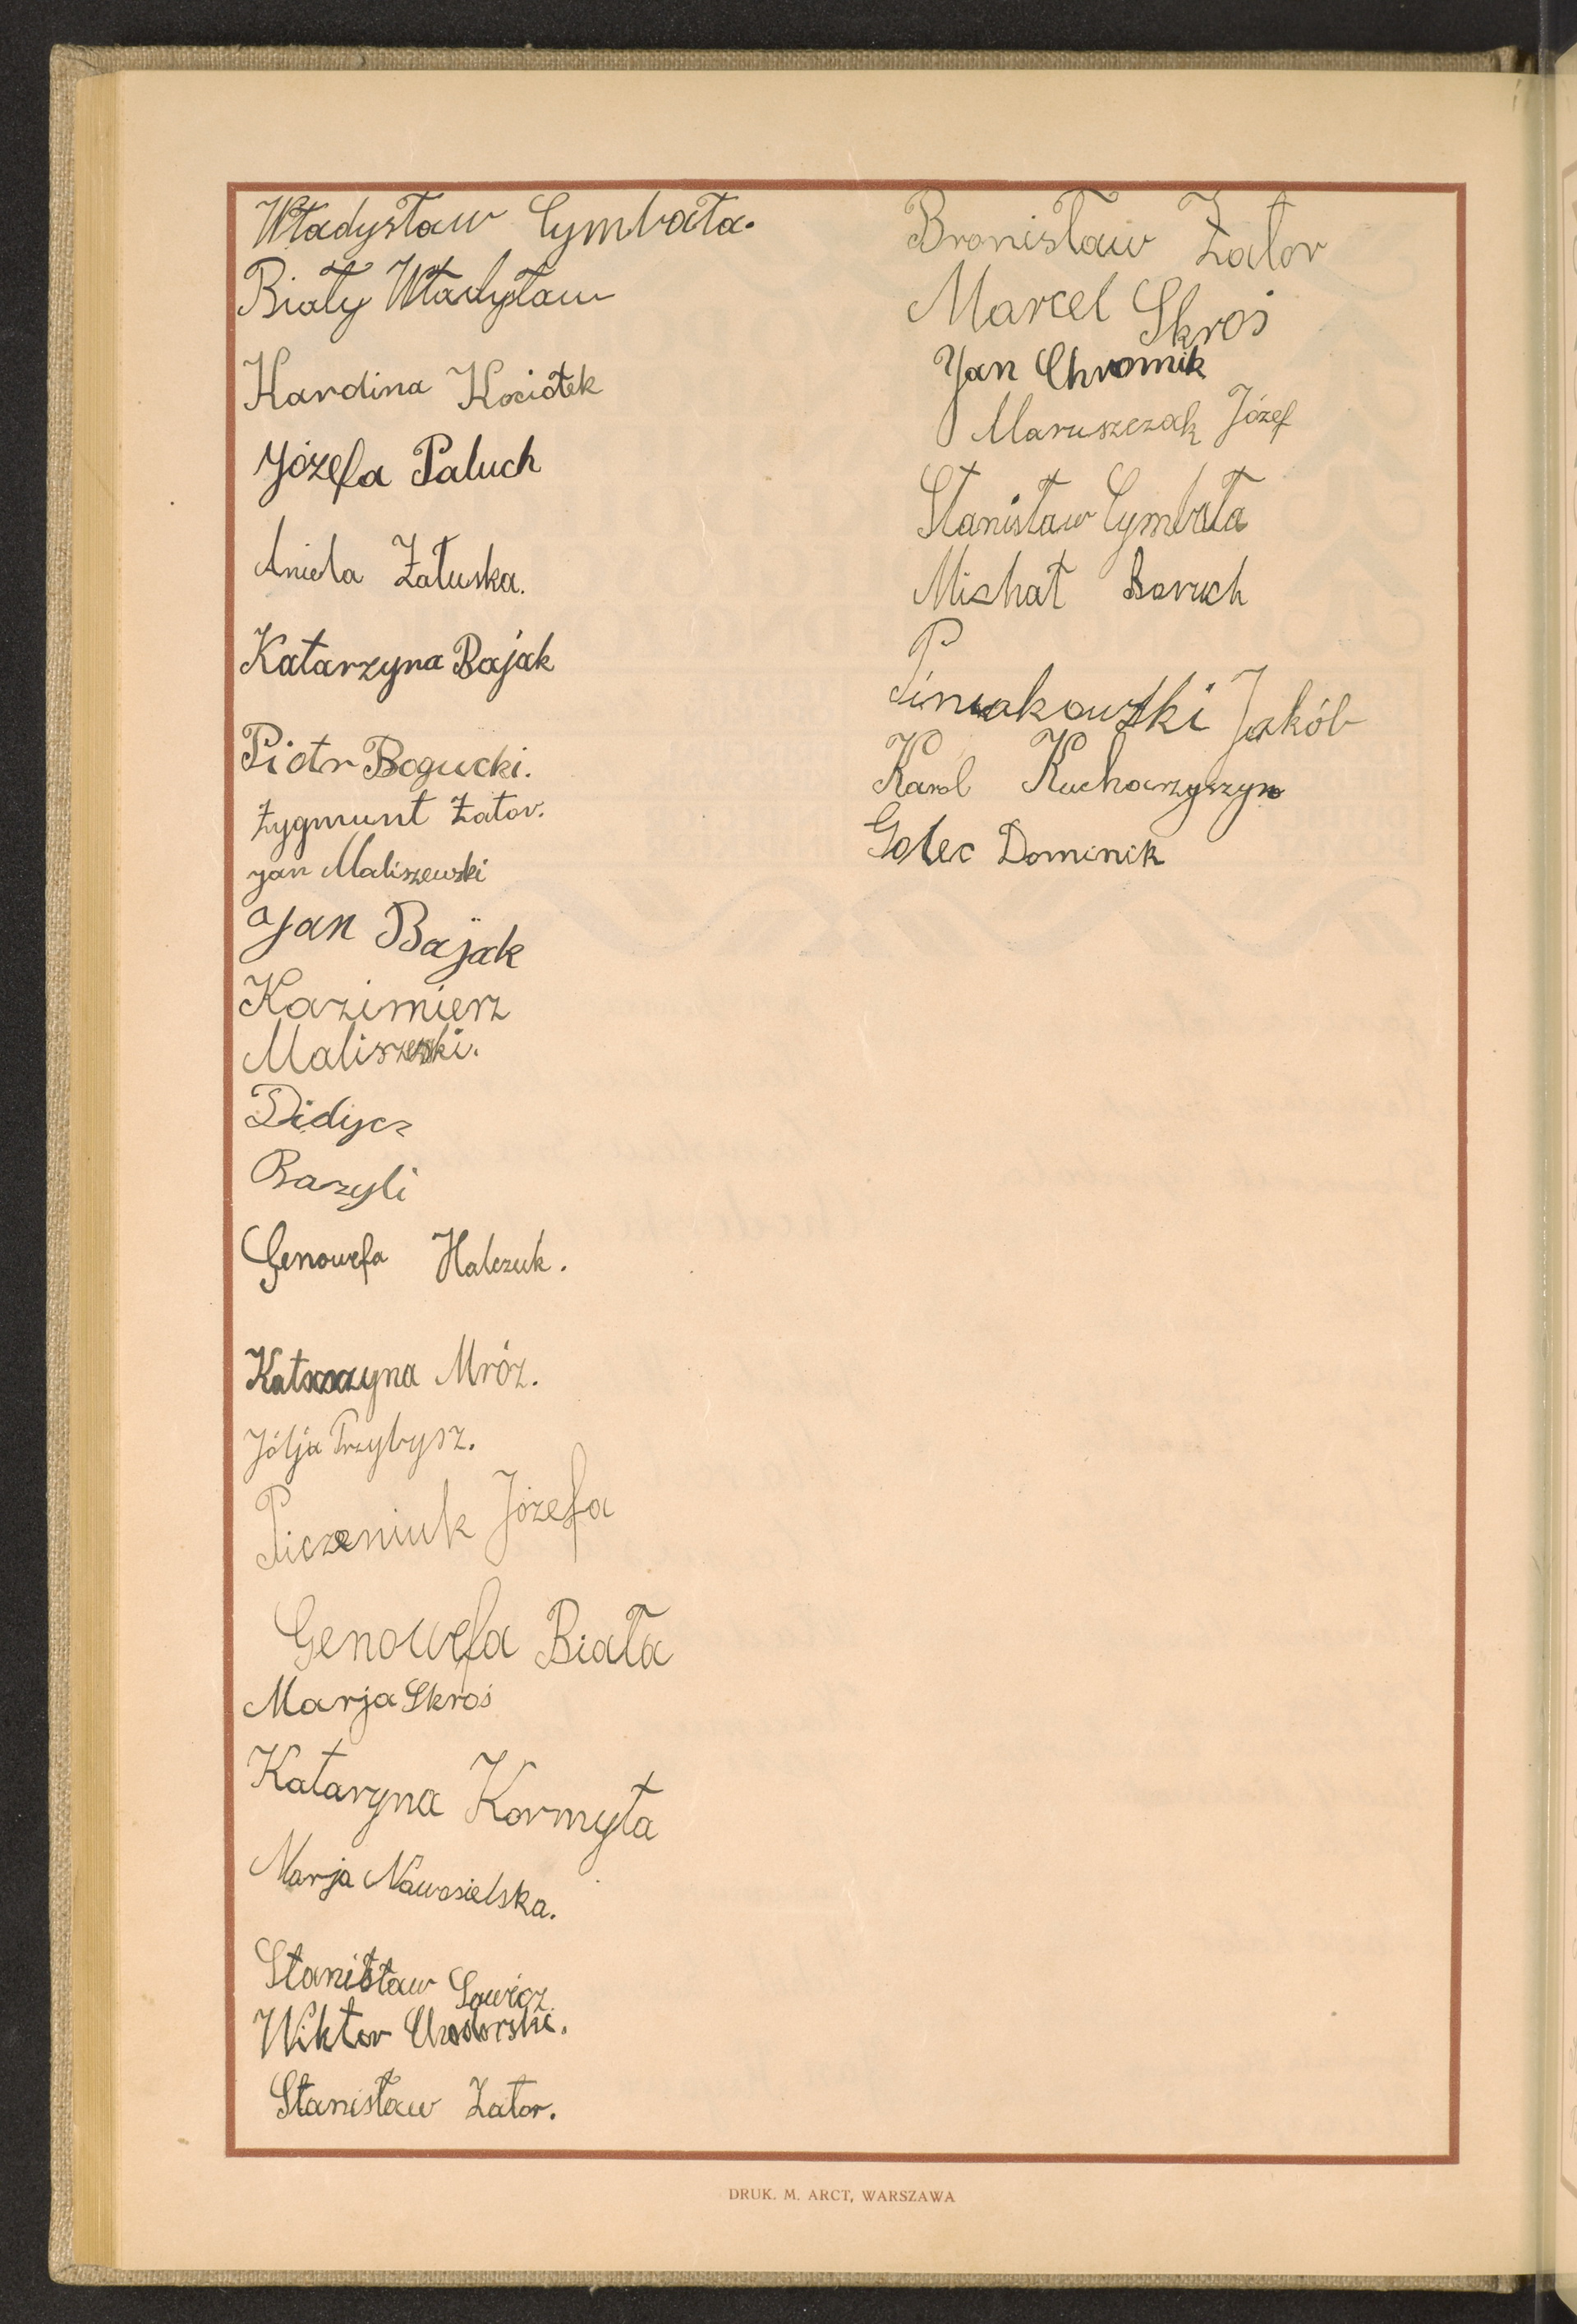 Władysław Cymbała.
Biały Władysław
Karolina Kociołek
Józefa Paluch
Aniela Załuska.
Katarzyna Bajak
Piotr Bogucki.
Zygmunt Zator.
Jan Maliszewski
Jan Bajak
Kazimierz
Maliszewski.
Didycz
Bazyli
Genowefa Halczuk.
Katarzyna Mróz.
Jólja Przybysz.
Piczeniuk Józefa
Genowefa Biała
Marja Skroś
Kataryna Kormyła
Marja Nawosielska.
Stanisław Sawicz
Wiktor
Stanisław Zator.
Bronisław Zator
Marcel Skroś
Jan Chromik
Maruszczak Józef
Stanisław Cymbała
Michał Boruch
P
Piniakowski Jakób
Karol Kucharzyszyn
Golec Dominik
DRUK. M. ARCT, WARSZAWA